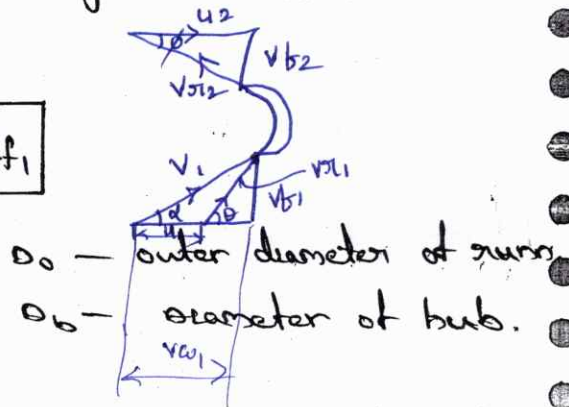 u2
ϕ
Vf2
Vr2
f1
V1
Vr1
Vf1
α
u1
θ
Do — outer diameter of runn
Db — Diameter of hub.
Vω1